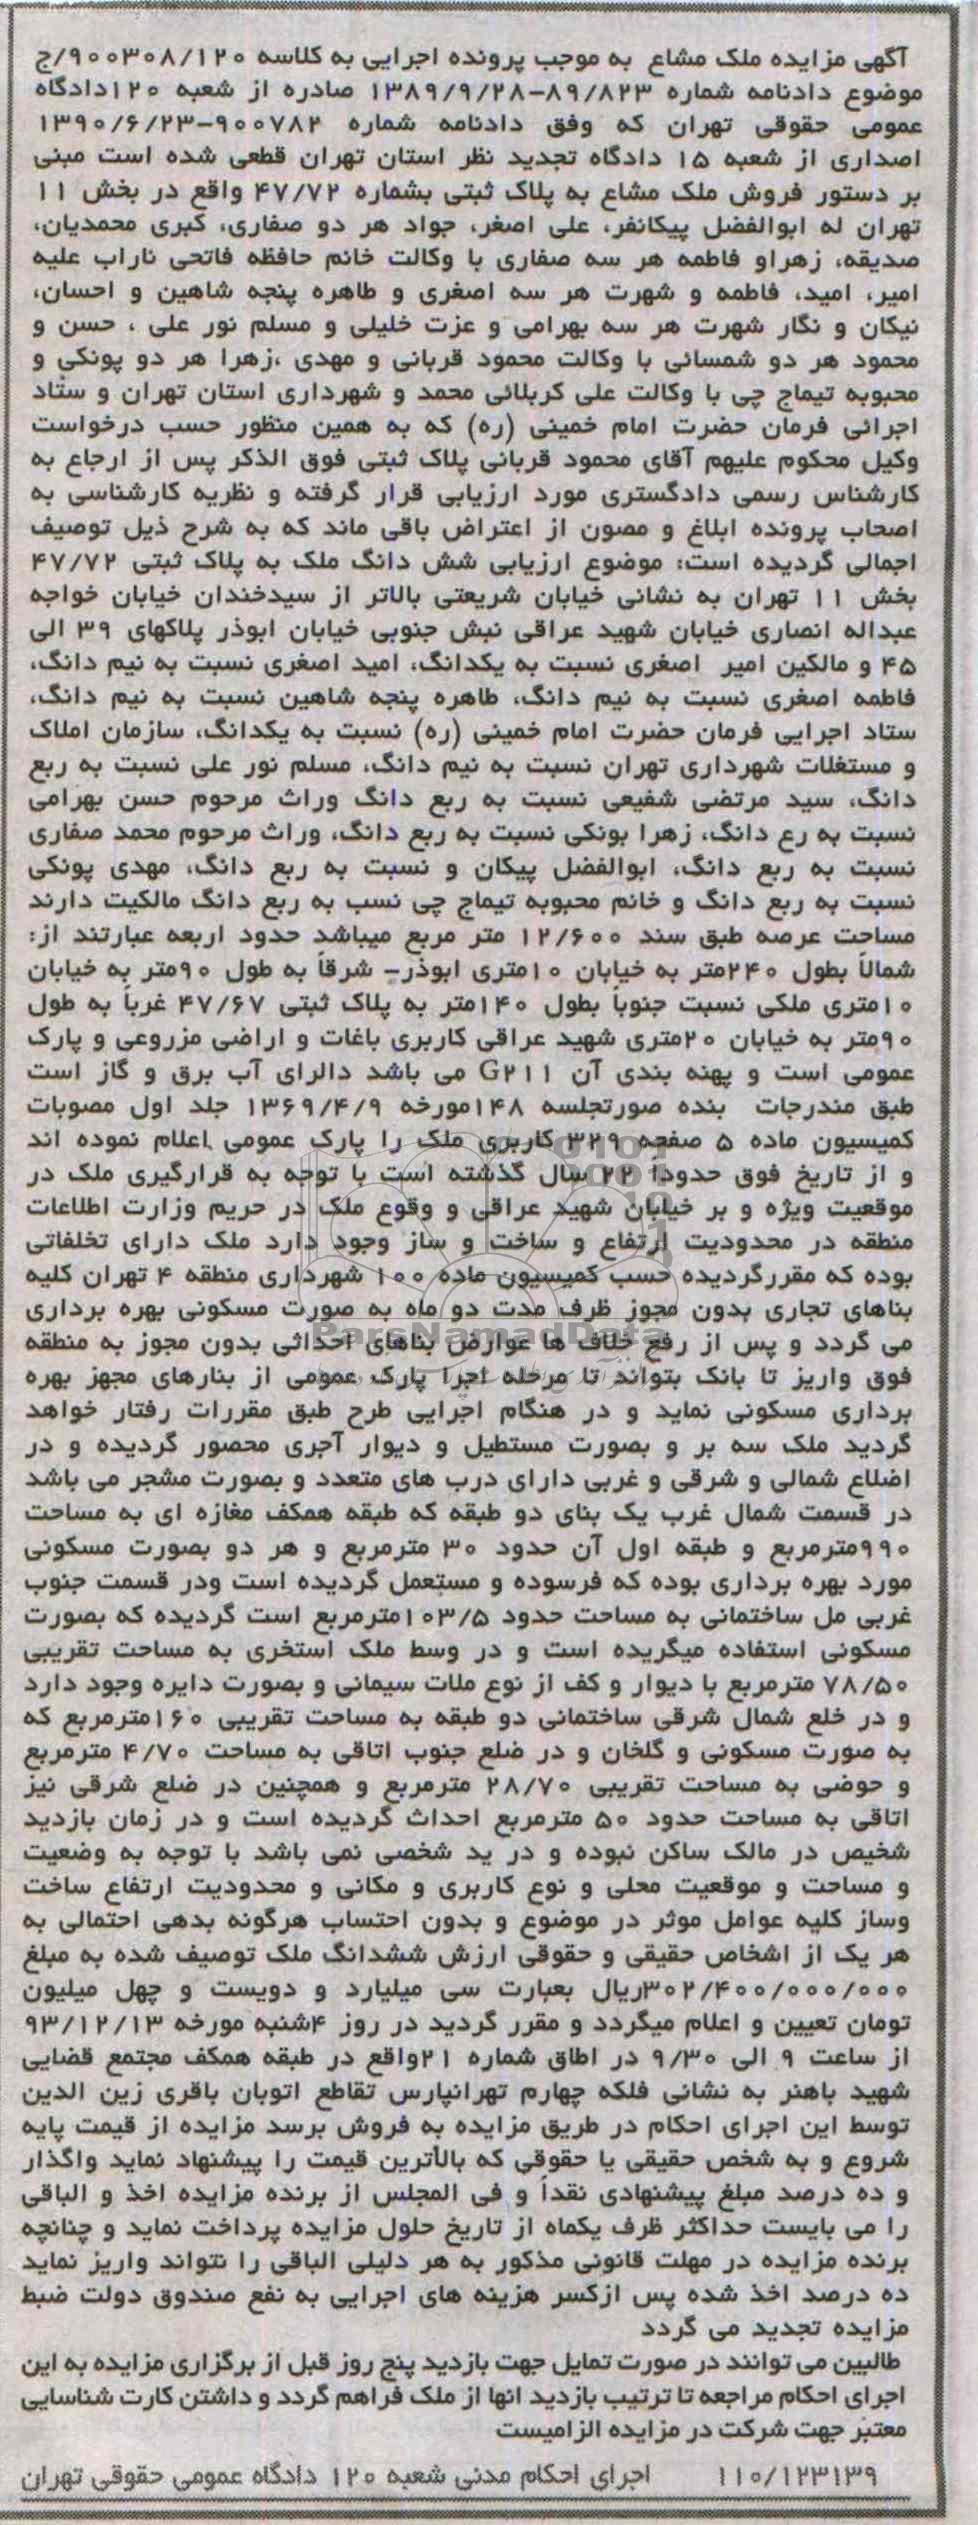 آگهی مزایده ملک مشاع به موجب پرونده اجرایی به کلاسه ۹۰۰۳۰۸/۱۲۰/ج
موضوع دادنامه شماره ۸۹/۸۲۳-۱۳۸۹/۹/۲۸ صادره از شعبه ۱۲۰دادگاه
عمومی حقوقی تهران که وفق دادنامه شماره ۹۰۰۷۸۲-۱۳۹۰/۶/۲۳
اصداری از شعبه ۱۵ دادگاه تجدید نظر استان تهران قطعی شده است مبنی
بر دستور فروش ملک مشاع به پلاک ثبتی بشماره ۴۷/۷۲ واقع در بخش ۱۱
تهران له ابوالفضل پیکانفر، علی اصغر، جواد هر دو صفاری، کبری محمدیان،
صدیقه، زهراو فاطمه هر سه صفاری با وکالت خانم حافظه فاتحی ناراب علیه
امیر، امید، فاطمه و شهرت هر سه اصغری و طاهره پنجه شاهین و احسان،
نیکان و نگار شهرت هر سه بهرامی و عزت خلیلی و مسلم نور علی ، حسن و
محمود هر دو شمسائی با وکالت محمود قربانی و مهدی ،زهرا هر دو پونکی و
محبوبه تیماج چی با وکالت علی کربلائی محمد و شهرداری استان تهران و ستاد
اجرائی فرمان حضرت امام خمینی (ره) که به همین منظور حسب درخواست
وکیل محکوم علیهم آقای محمود قربانی پلاک ثبتی فوق الذکر پس از ارجاع به
کارشناس رسمی دادگستری مورد ارزیابی قرار گرفته و نظریه کارشناسی به
اصحاب پرونده ابلاغ و مصون از اعتراض باقی ماند که به شرح ذیل توصیف
اجمالی گردیده است: موضوع ارزیابی شش دانگ ملک به پلاک ثبتی ۴۷/۷۲
بخش ۱۱ تهران به نشانی خیابان شریعتی بالاتر از سیدخندان خیابان خواجه
عبداله انصاری خیابان شهید عراقی نبش جنوبی خیابان ابوذر پلاکهای ۳۹ الی
۴۵ و مالکین امیر اصغری نسبت به یکدانگ، امید اصغری نسبت به نیم دانگ،
فاطمه اصغری نسبت به نیم دانگ، طاهره پنجه شاهین نسبت به نیم دانگ،
ستاد اجرایی فرمان حضرت امام خمینی (ره) نسبت به یکدانگ، سازمان املاک
و مستغلات شهرداری تهران نسبت به نیم دانگ، مسلم نور علی نسبت به ربع
دانگ، سید مرتضی شفیعی نسبت به ربع دانگ وراث مرحوم حسن بهرامی
نسبت به رع دانگ، زهرا بونکی نسبت به ربع دانگ، وراث مرحوم محمد صفاری
نسبت به ربع دانگ، ابوالفضل پیکان و نسبت به ربع دانگ، مهدی پونکی
نسبت به ربع دانگ و خانم محبوبه تیماج چی نسب به ربع دانگ مالکیت دارند
مساحت عرصه طبق سند ۱۲/۶۰۰ متر مربع میباشد حدود اربعه عبارتند از:
شمالاً بطول ۲۴۰متر به خیابان ۱۰متری ابوذر- شرقاً به طول ۹۰متر به خیابان
۱۰متری ملکی نسبت جنوباً بطول ۱۴۰متر به پلاک ثبتی ۴۷/۶۷ غرباً به طول
۹۰متر به خیابان ۲۰متری شهید عراقی کاربری باغات و اراضی مزروعی و پارک
عمومی است و پهنه بندی آن G۲۱۱ می باشد دالرای آب برق و گاز است
طبق مندرجات بنده صورتجلسه ۱۴۸مورخه ۱۳۶۹/۴/۹ جلد اول مصوبات
کمیسیون ماده ۵ صفحه ۳۲۹ کاربری ملک را پارک عمومی اعلام نموده اند
و از تاریخ فوق حدوداً ۲۲ سال گذشته است با توجه به قرارگیری ملک در
موقعیت ویژه و بر خیابان شهید عراقی و وقوع ملک در حریم وزارت اطلاعات
منطقه در محدودیت ارتفاع و ساخت و ساز وجود دارد ملک دارای تخلفاتی
بوده که مقررگردیده حسب کمیسیون ماده ۱۰۰ شهرداری منطقه ۴ تهران کلیه
بناهای تجاری بدون مجوز ظرف مدت دو ماه به صورت مسکونی بهره برداری
می گردد و پس از رفع خلاف ها عوارض بناهای احداثی بدون مجوز به منطقه
فوق واریز تا بانک بتواند تا مرحله اجرا پارک عمومی از بنارهای مجهز بهره
برداری مسکونی نماید و در هنگام اجرایی طرح طبق مقررات رفتار خواهد
گردید ملک سه بر و بصورت مستطیل و دیوار آجری محصور گردیده و در
اضلاع شمالی و شرقی و غربی دارای درب های متعدد و بصورت مشجر می باشد
در قسمت شمال غرب یک بنای دو طبقه که طبقه همکف مغازه ای به مساحت
۹۹۰مترمربع و طبقه اول آن حدود ۳۰ مترمربع و هر دو بصورت مسکونی
مورد بهره برداری بوده که فرسوده و مستعمل گردیده است ودر قسمت جنوب
غربی مل ساختمانی به مساحت حدود ۱۰۳/۵مترمربع است گردیده که بصورت
مسکونی استفاده میگریده است و در وسط ملک استخری به مساحت تقریبی
۷۸/۵۰ مترمربع با دیوار و کف از نوع ملات سیمانی و بصورت دایره وجود دارد
و در خلع شمال شرقی ساختمانی دو طبقه به مساحت تقریبی ۱۶۰مترمربع که
به صورت مسکونی و گلخان و در ضلع جنوب اتاقی به مساحت ۴/۷۰ مترمربع
و حوضی به مساحت تقریبی ۲۸/۷۰ مترمربع و همچنین در ضلع شرقی نیز
اتاقی به مساحت حدود ۵۰ مترمربع احداث گردیده است و در زمان بازدید
شخیص در مالک ساکن نبوده و در ید شخصی نمی باشد با توجه به وضعیت
و مساحت و موقعیت محلی و نوع کاربری و مکانی و محدودیت ارتفاع ساخت
وساز کلیه عوامل موثر در موضوع و بدون احتساب هرگونه بدهی احتمالی به
هر یک از اشخاص حقیقی و حقوقی ارزش ششدانگ ملک توصیف شده به مبلغ
۳۰۲/۴۰۰/۰۰۰/۰۰۰ریال بعبارت سی میلیارد و دویست و چهل میلیون
تومان تعیین و اعلام میگردد و مقرر گردید در روز ۴شنبه مورخه ۹۳/۱۲/۱۳
از ساعت ۹ الی ۹/۳۰ در اطاق شماره ۲۱واقع در طبقه همکف مجتمع قضایی
شهید باهنر به نشانی فلکه چهارم تهرانپارس تقاطع اتوبان باقری زین الدین
توسط این اجرای احکام در طریق مزایده به فروش برسد مزایده از قیمت پایه
شروع و به شخص حقیقی یا حقوقی که بالاترین قیمت را پیشنهاد نماید واگذار
و ده درصد مبلغ پیشنهادی نقداً و فی المجلس از برنده مزایده اخذ و الباقی
را می بایست حداکثر ظرف یکماه از تاریخ حلول مزایده پرداخت نماید و چنانچه
برنده مزایده در مهلت قانونی مذکور به هر دلیلی الباقی را نتواند واریز نماید
ده درصد اخذ شده پس ازکسر هزینه های اجرایی به نفع صندوق دولت ضبط
مزایده تجدید می گردد
طالبین می توانند در صورت تمایل جهت بازدید پنج روز قبل از برگزاری مزایده به این
اجرای احکام مراجعه تا ترتیب بازدید انها از ملک فراهم گردد و داشتن کارت شناسایی
معتبر جهت شرکت در مزایده الزامیست
۱۱۰/۱۲۳۱۳۹ اجرای احکام مدنی شعبه ۱۲۰ دادگاه عمومی حقوقی تهران
ParsNamadData